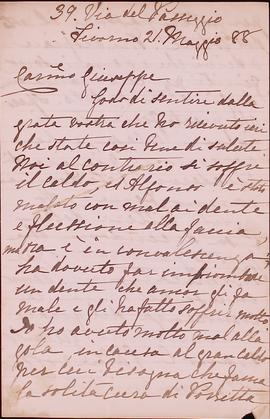 39. Via del Passeggio
Livorno 21. Maggio 88
Carmo Giuseppe
Godo di sentire dalla
grata vostra che ho ricevuto ieri
che state così bene di salute
Noi al contrario si soffre
il caldo, ed Alfonso è stato
malato con mal ai denti
e flessione alla faccia,
ma ora è in convalescenza;
ha dovuto far
un dente che ancor gli fa
male e gli ha fatto soffrir molto
Io ho avuto molto mal alla
gola in causa al gran caldo
per cui bisogna che faccia
la solita cura di Porretta